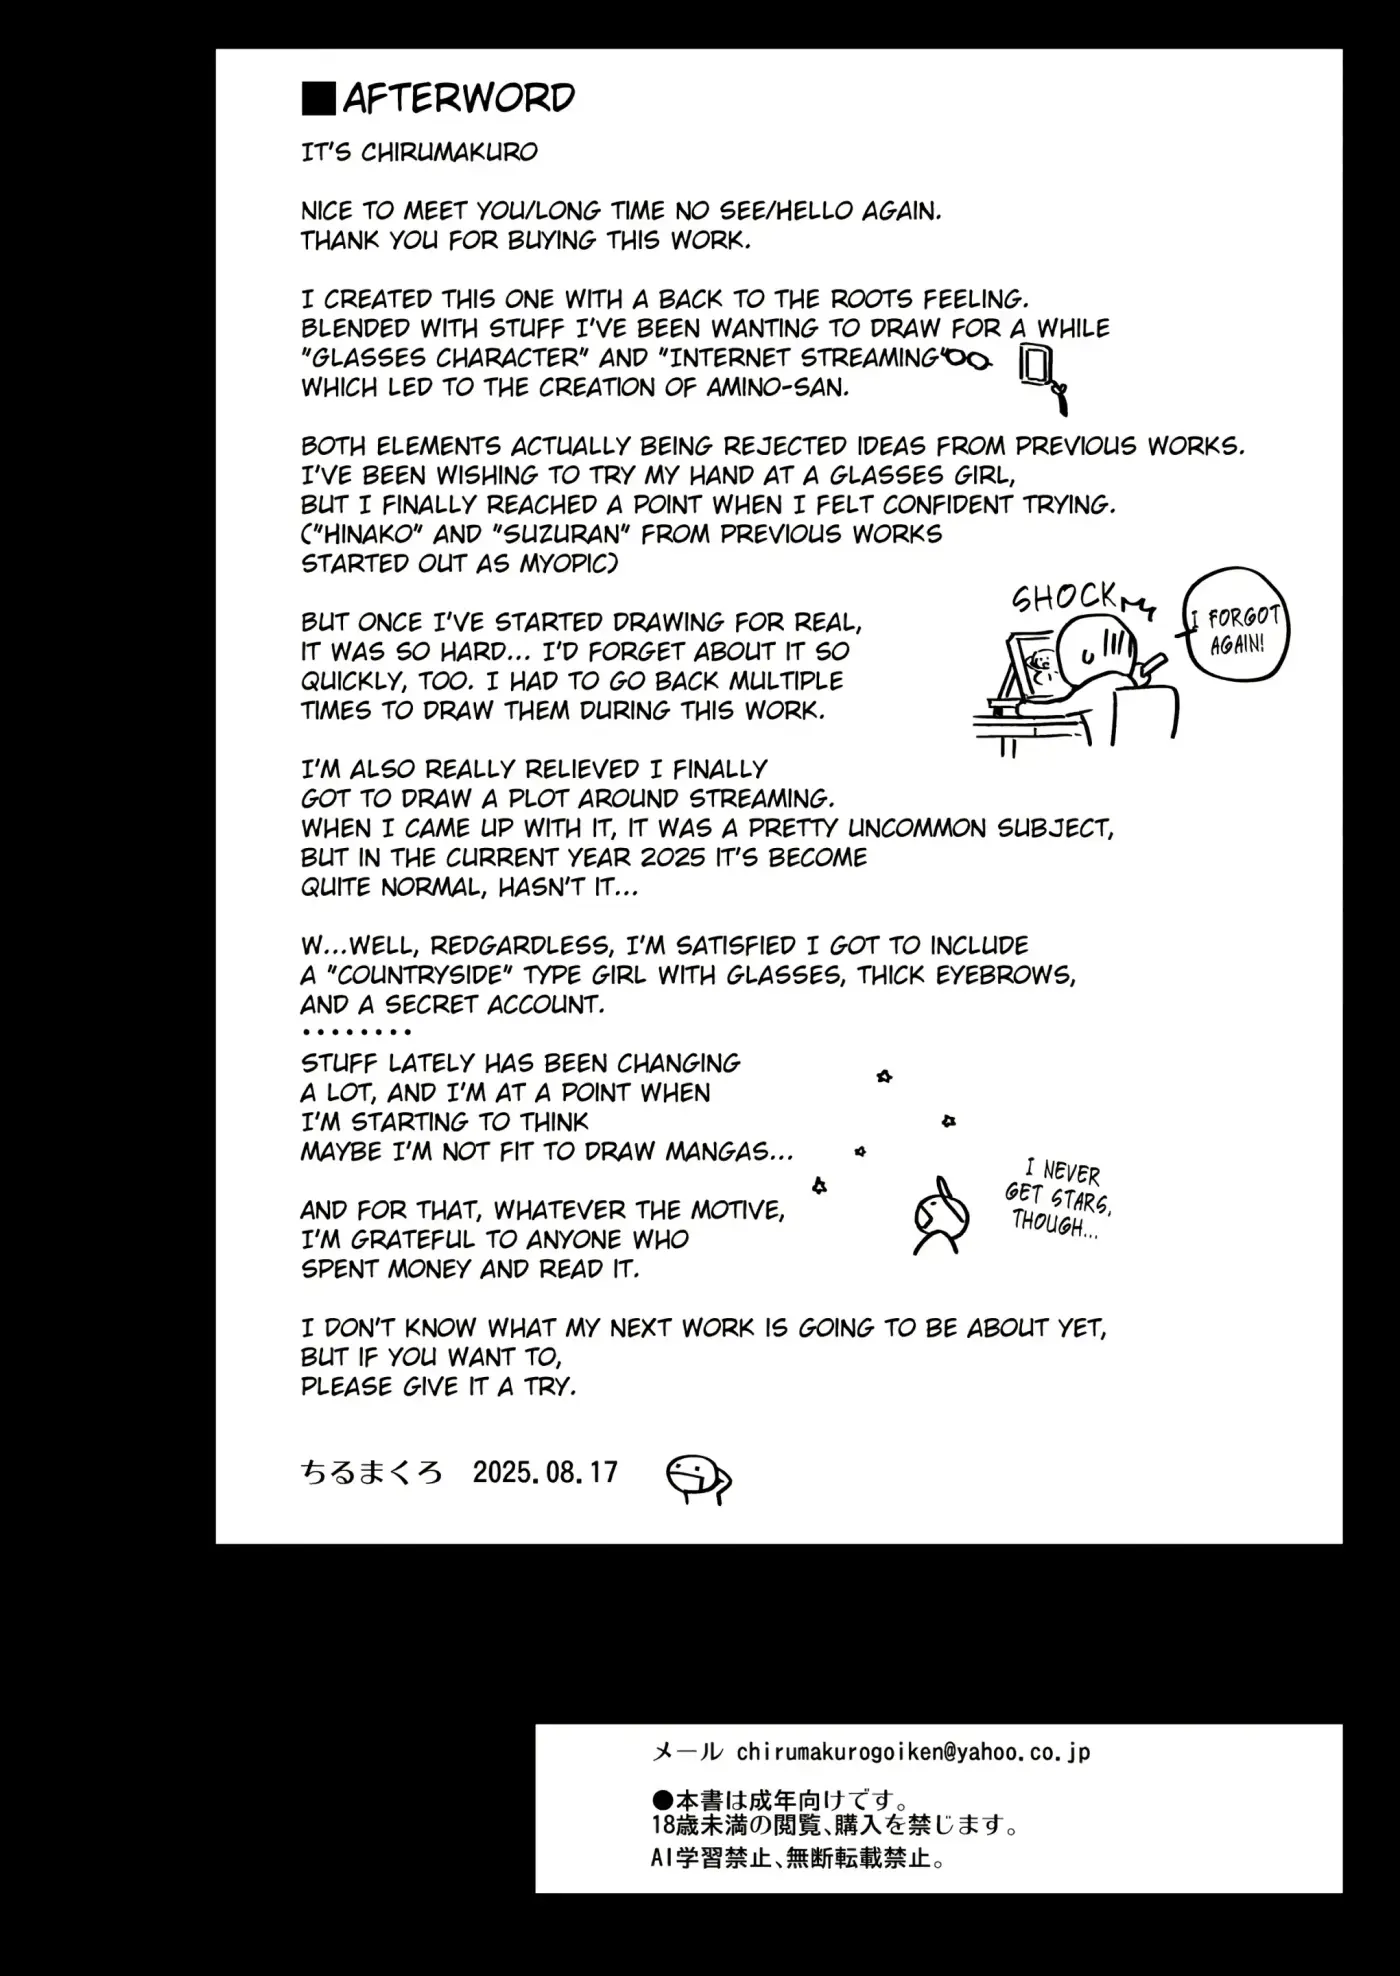 ■AFTERWORD
IT'S CHIRUMAKURO
NICE TO MEET YOU/LONG TIME NO SEE/HELLO AGAIN.
THANK YOU FOR BUYING THIS WORK.
I CREATED THIS ONE WITH A BACK TO THE ROOTS FEELING.
BLENDED WITH STUFF I'VE BEEN WANTING TO DRAW FOR A WHILE
"GLASSES CHARACTER" AND "INTERNET STREAMING"
WHICH LED TO THE CREATION OF AMINO-SAN.
BOTH ELEMENTS ACTUALLY BEING REJECTED IDEAS FROM PREVIOUS WORKS.
I'VE BEEN WISHING TO TRY MY HAND AT A GLASSES GIRL,
BUT I FINALLY REACHED A POINT WHEN I FELT CONFIDENT TRYING.
("HINAKO" AND "SUZURAN" FROM PREVIOUS WORKS
STARTED OUT AS MYOPIC)
SHOCK
I FORGOT
AGAIN!
BUT ONCE I'VE STARTED DRAWING FOR REAL,
IT WAS SO HARD... I'D FORGET ABOUT IT SO
QUICKLY, TOO. I HAD TO GO BACK MULTIPLE
TIMES TO DRAW THEM DURING THIS WORK.
I'M ALSO REALLY RELIEVED I FINALLY
GOT TO DRAW A PLOT AROUND STREAMING.
WHEN I CAME UP WITH IT, IT WAS A PRETTY UNCOMMON SUBJECT,
BUT IN THE CURRENT YEAR 2025 IT'S BECOME
QUITE NORMAL, HASN'T IT...
W...WELL, REDGARDLESS, I'M SATISFIED I GOT TO INCLUDE
A "COUNTRYSIDE" TYPE GIRL WITH GLASSES, THICK EYEBROWS,
AND A SECRET ACCOUNT.
........
STUFF LATELY HAS BEEN CHANGING
A LOT, AND I'M AT A POINT WHEN
I'M STARTING TO THINK
MAYBE I'M NOT FIT TO DRAW MANGAS...
I NEVER
GET STARS,
THOUGH...
AND FOR THAT, WHATEVER THE MOTIVE,
I'M GRATEFUL TO ANYONE WHO
SPENT MONEY AND READ IT.
I DON'T KNOW WHAT MY NEXT WORK IS GOING TO BE ABOUT YET,
BUT IF YOU WANT TO,
PLEASE GIVE IT A TRY.
ちるまくろ 2025.08.17
メール chirumakurogoiken@yahoo.co.jp
●本書は成年向けです。
18歳未満の閲覧、購入を禁じます。
AI学習禁止、無断転載禁止。